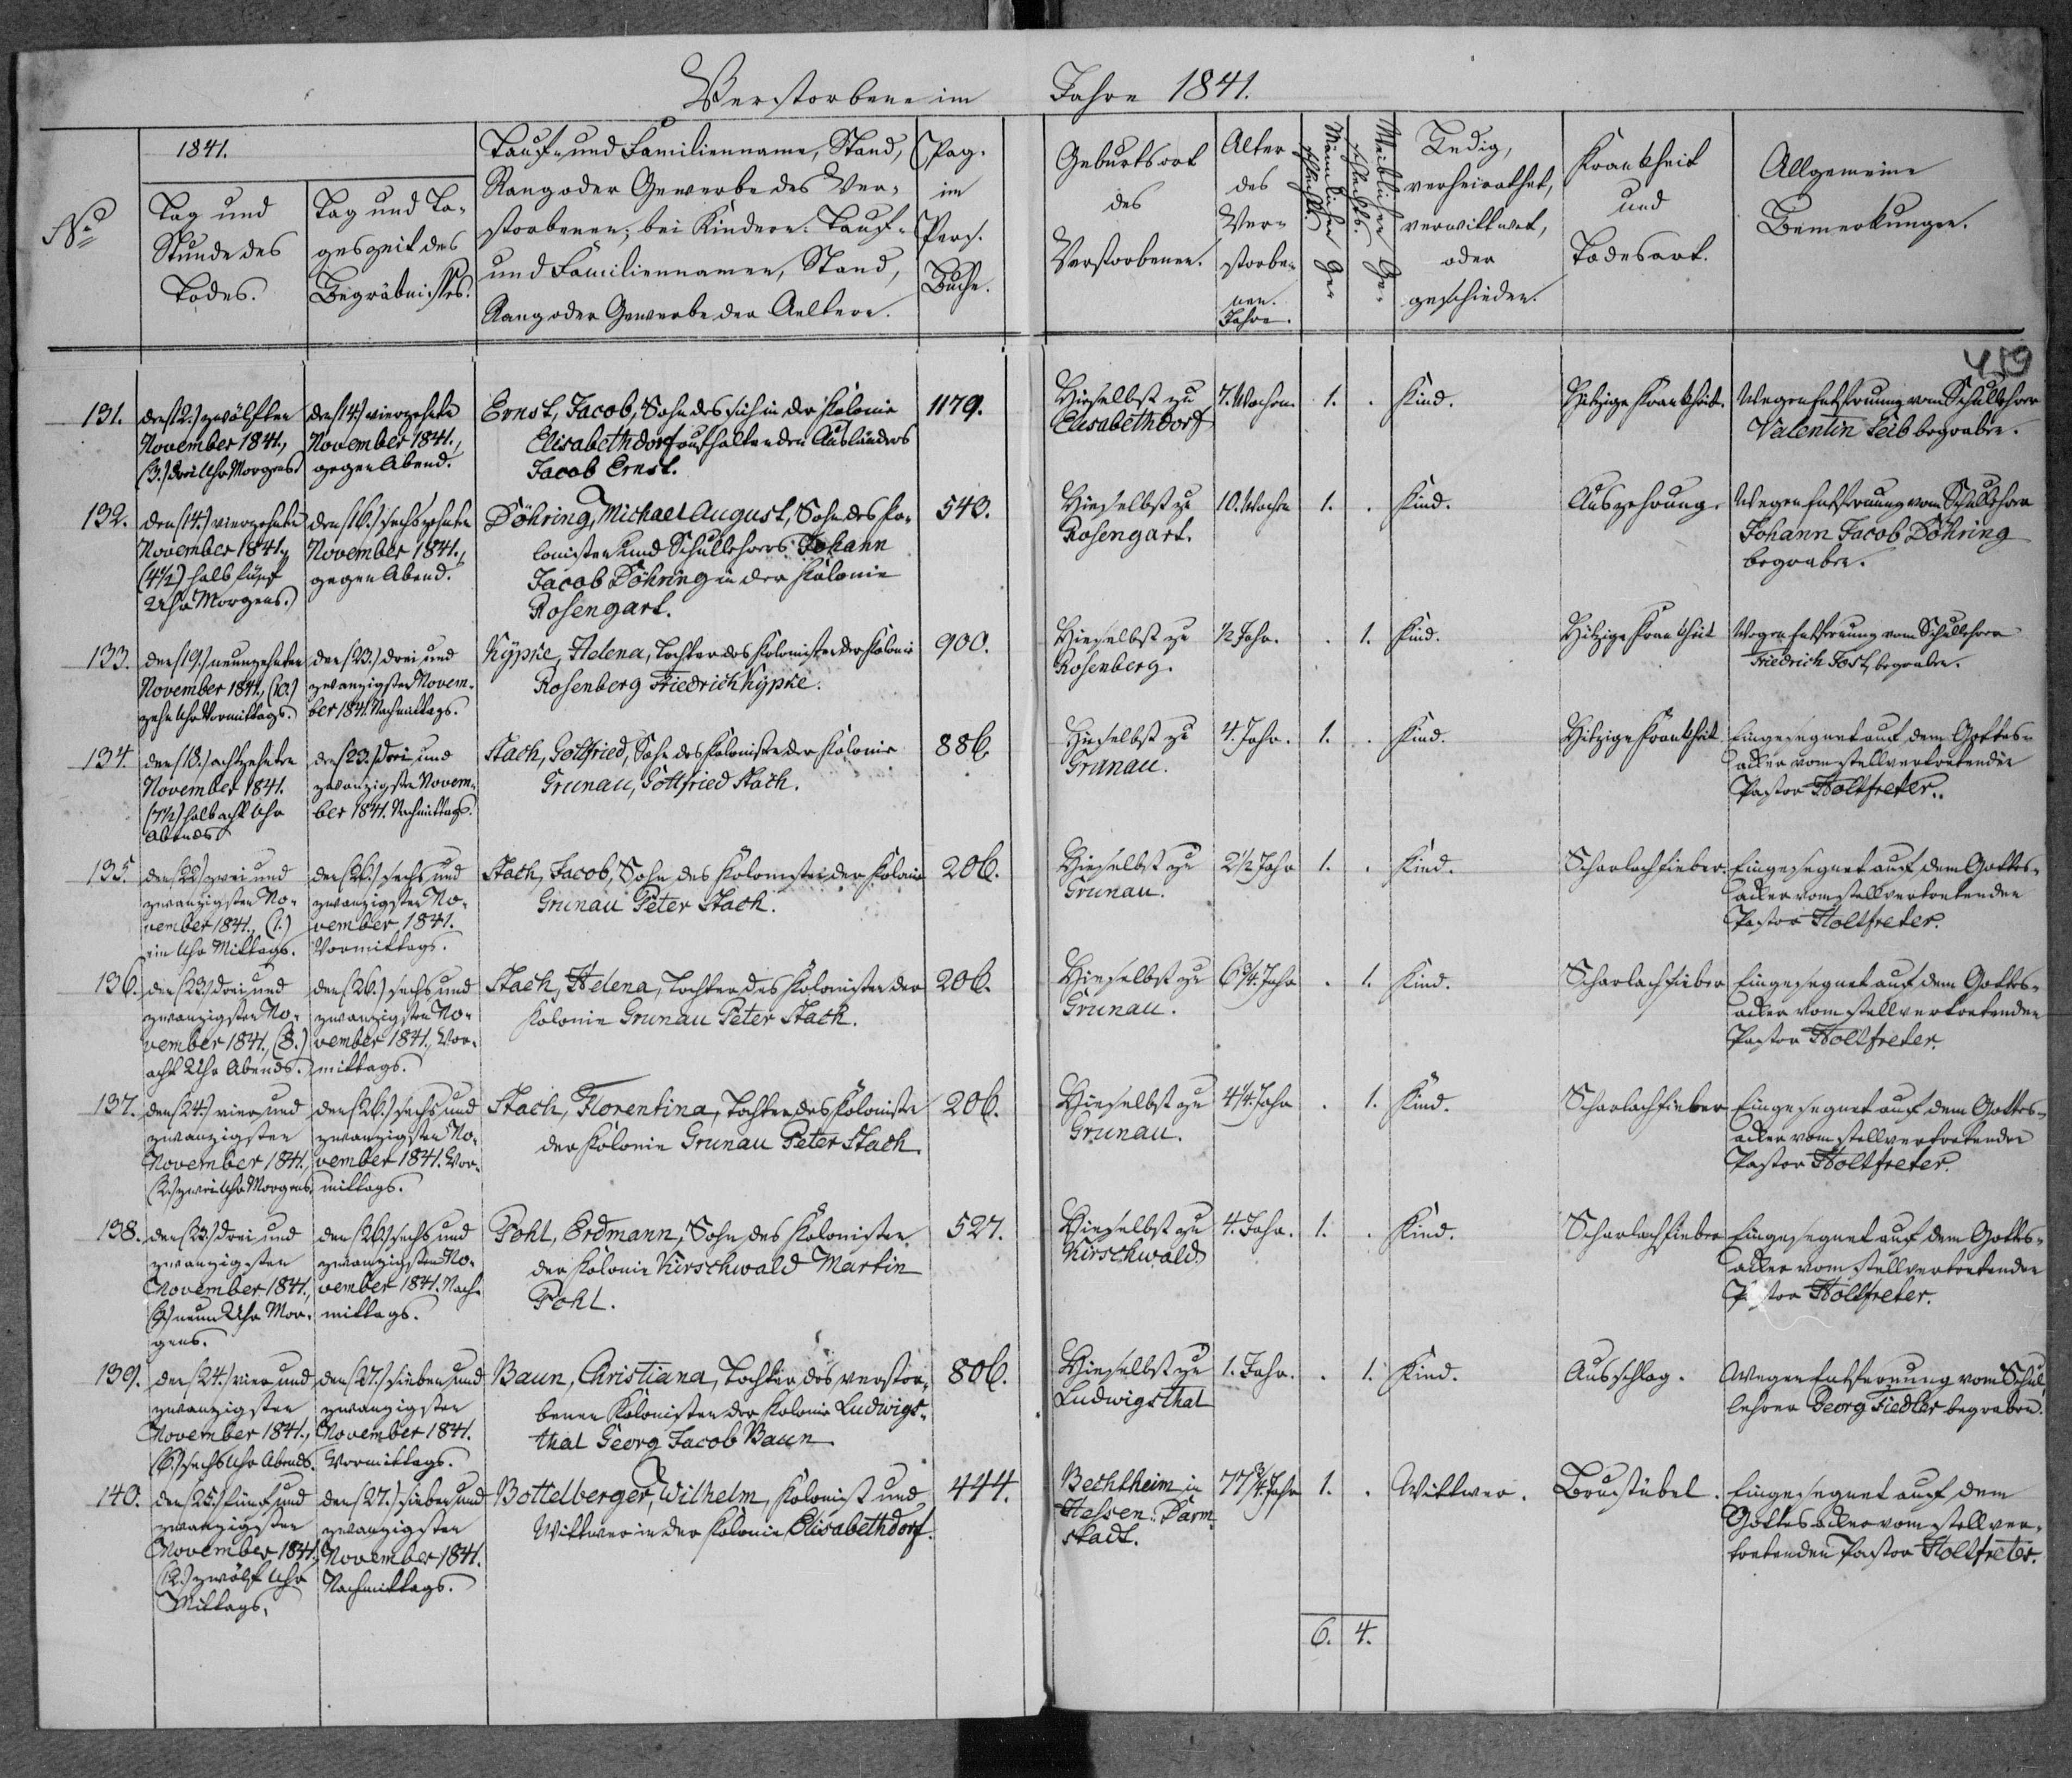 Verstorbene im Jahre 1841.
459
No
1841.
Tag und
Stunde des
Todes.
Tag und Ta-
geszeit des
Begräbnisses.
Tauf- und Familienname, Stand,
Rang oder Gewerbe des Ver-
storbenen; bei Kindern: Tauf-
und Familiennamen, Stand,
Rang oder Gewerbe der Aeltern.
Pag.
im
Pers.
Buche.
Geburtsort
des
Verstorbenen.
Alter
des
Ver-
storbe-
nen.
Jahre.
Männlichen Ge-
schlechts.
Weiblichen Ge-
schlechts.
Ledig,
verheirathet,
verwittwet,
oder
geschieden.
Krankheit
und
Todesart.
Allgemeine
Bemerkungen.
131.
den (12.) zwölften
November 1841.,
(3.) drei Uhr Morgens.
den (14.) vierzehnten
November 1841.,
gegen Abend.
Ernst, Jacob, Sohn des sich in der Kolonie
Elisabethdorf aufhaltenden Ausländers
Jacob Ernst.
1179.
Hieselbst zu
Elisabethdorf
7. Wochen.
1.
.
Kind.
Hitzige Krankheit.
Wegen Entfernung vom Schullehrer
Valentin Leib begraben.
132.
den (14.) vierzehnten
November 1841.,
(4 1/2) halb fünf
Uhr Morgens.
den (16.) sechszehnten
November 1841.,
gegen Abend.
Döhring, Michael August, Sohn des Ko-
lonisten und Schullehrers Johann
Jacob Döhring in der Kolonie
Rosengart.
543.
Hieselbst zu
Rosengart.
10. Wochen
1.
.
Kind.
Auszehrung.
Wegen Entfernung vom Schullehrer
Johann Jacob Döhring
begraben.
133.
den (19.) neunzehnten
November 1841., (10.)
zehn Uhr Vormittags.
den (23.) drei und
zwanzigsten Novem-
ber 1841. Nachmittags.
Kypke, Helena, Tochter des Kolonisten der Kolonie
Rosenberg Friedrich Kypke.
900.
Hieselbst zu
Rosenberg.
1/2 Jahr.
.
1.
Kind.
Hitzige Krankheit
Wegen Entfernung vom Schullehrer
Friedrich Jost, begraben.
134.
den (18.) achtzehnten
November 1841.
(7 1/2) halb acht Uhr
Abends
den (23.) drei und
zwanzigsten Novem-
ber 1841. Nachmittags.
Stach, Gottfried, Sohn des Kolonisten der Kolonie
Grunau, Gottfried Stach.
886.
Hieselbst zu
Grunau.
4. Jahr.
1.
.
Kind
Hitzige Krankheit
Eingesegnet auf dem Gottes-
acker vom stellvertretenden
Pastor Holtfreter.
135.
den (22.) zwei und
zwanzigsten No-
vember 1841., (1.)
ein Uhr Mittags.
den (26.) sechs und
zwanzigsten No-
vember 1841.
Vormittags.
Stach, Jacob, Sohn des Kolonisten der Kolonie
Grunau Peter Stach.
206.
Hieselbst zu
Grunau.
2 1/2 Jahr
1.
.
Kind.
Scharlachfieber.
Eingesegnet auf dem Gottes-
acker vom stellvertretenden
Pastor Holtfreter.
136.
den (23.) drei und
zwanzigsten No-
vember 1841., (8.)
acht Uhr Abends.
den (26.) sechs und
zwanzigsten No-
vember 1841., Vor-
mittags.
Stach, Helena, Tochter des Kolonisten der
Kolonie Grunau Peter Stach.
206.
Hieselbst zu
Grunau.
6 3/4 Jahr
.
1.
Kind.
Scharlachfieber
Eingesegnet auf dem Gottes-
acker vom stellvertretenden
Pastor Holtfreter.
137.
den (24.) vier und
zwanzigsten
November 1841.,
(2.) zwei Uhr Morgens.
den (26.) sechs und
zwanzigsten No-
vember 1841. Vor-
mittags.
Stach, Florentina, Tochter des Kolonisten
der Kolonie Grunau Peter Stach.
206.
Hieselbst zu
Grunau.
4 1/4 Jahr
.
1.
Kind.
Scharlachfieber
Eingesegnet auf dem Gottes-
acker vom stellvertretenden
Pastor Holtfreter.
138.
den (23.) drei und
zwanzigsten
November 1841.,
(9.) neun Uhr Mor-
gens.
den (26.) sechs und
zwanzigsten No-
vember 1841. Nach-
mittags.
Pohl, Erdmann, Sohn des Kolonisten
der Kolonie Kirschwald Martin
Pohl.
527.
Hieselbst zu
Kirschwald.
4. Jahr.
1.
.
Kind.
Scharlachfieber
Eingesegnet auf dem Gottes-
acker vom stellvertretenden
Pastor Holtfreter.
139.
den (24.) vier und
zwanzigsten
November 1841.,
(6.) sechs Uhr Abends.
den (27.) sieben und
zwanzigsten
November 1841.
Vormittags.
Baun, Christiana, Tochter des verstor-
benen Kolonisten der Kolonie Ludwigs-
thal Georg Jacob Baun.
806.
Hieselbst zu
Ludwigsthal
1. Jahr.
.
1.
Kind.
Ausschlag.
Wegen Entfernung vom Schul-
lehrer Georg Fiedler begraben.
140.
den (25.) fünf und
zwanzigsten
November 1841.
(12.) zwölf Uhr
Mittags.
den (27.) sieben und
zwanzigsten
November 1841.
Nachmittags.
Bottelberger, Wilhelm, Kolonist und
Wittwer in der Kolonie Elisabethdorf.
444.
Bechtheim in
Hessen-Darm-
stadt.
77 3/4 Jahr
1.
.
Wittwer.
Brustübel.
Eingesegnet auf dem
Gottesacker vom stellver-
tretenden Pastor Holtfreter.
6. 4.